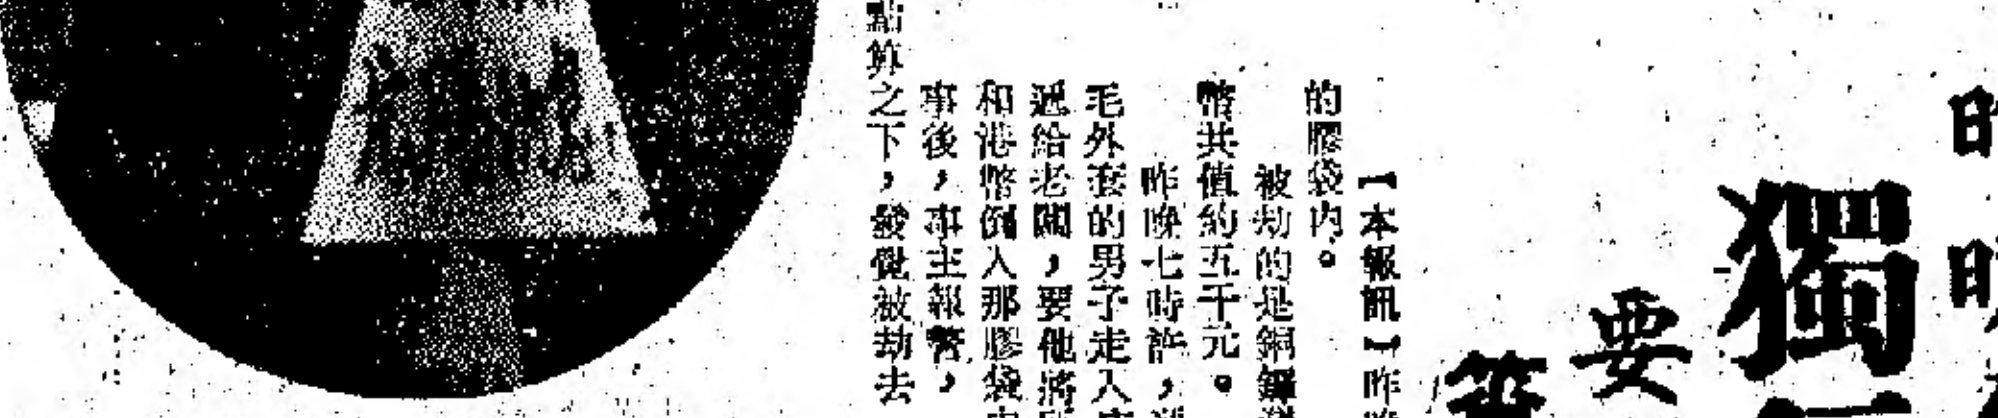 獨
要
【本報訊】昨
的膠袋內。
被劫的是銅鑼
幣共值約五千元。
昨晚七時許，
毛外套的男子走入
遞給老闆，要他將
和港幣倒入那膠袋
事後，事主報警，
點算之下，發覺被劫去